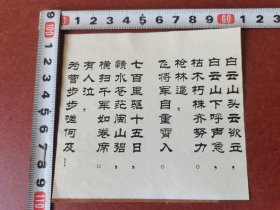 白云山头云欲立，
白云山下呼声急，
枯木朽株齐努力。
枪林逼，
飞将军自重霄入。
七百里驱十五日，
赣水苍茫闽山碧，
横扫千军如卷席。
有人泣，
为营步步嗟何及！